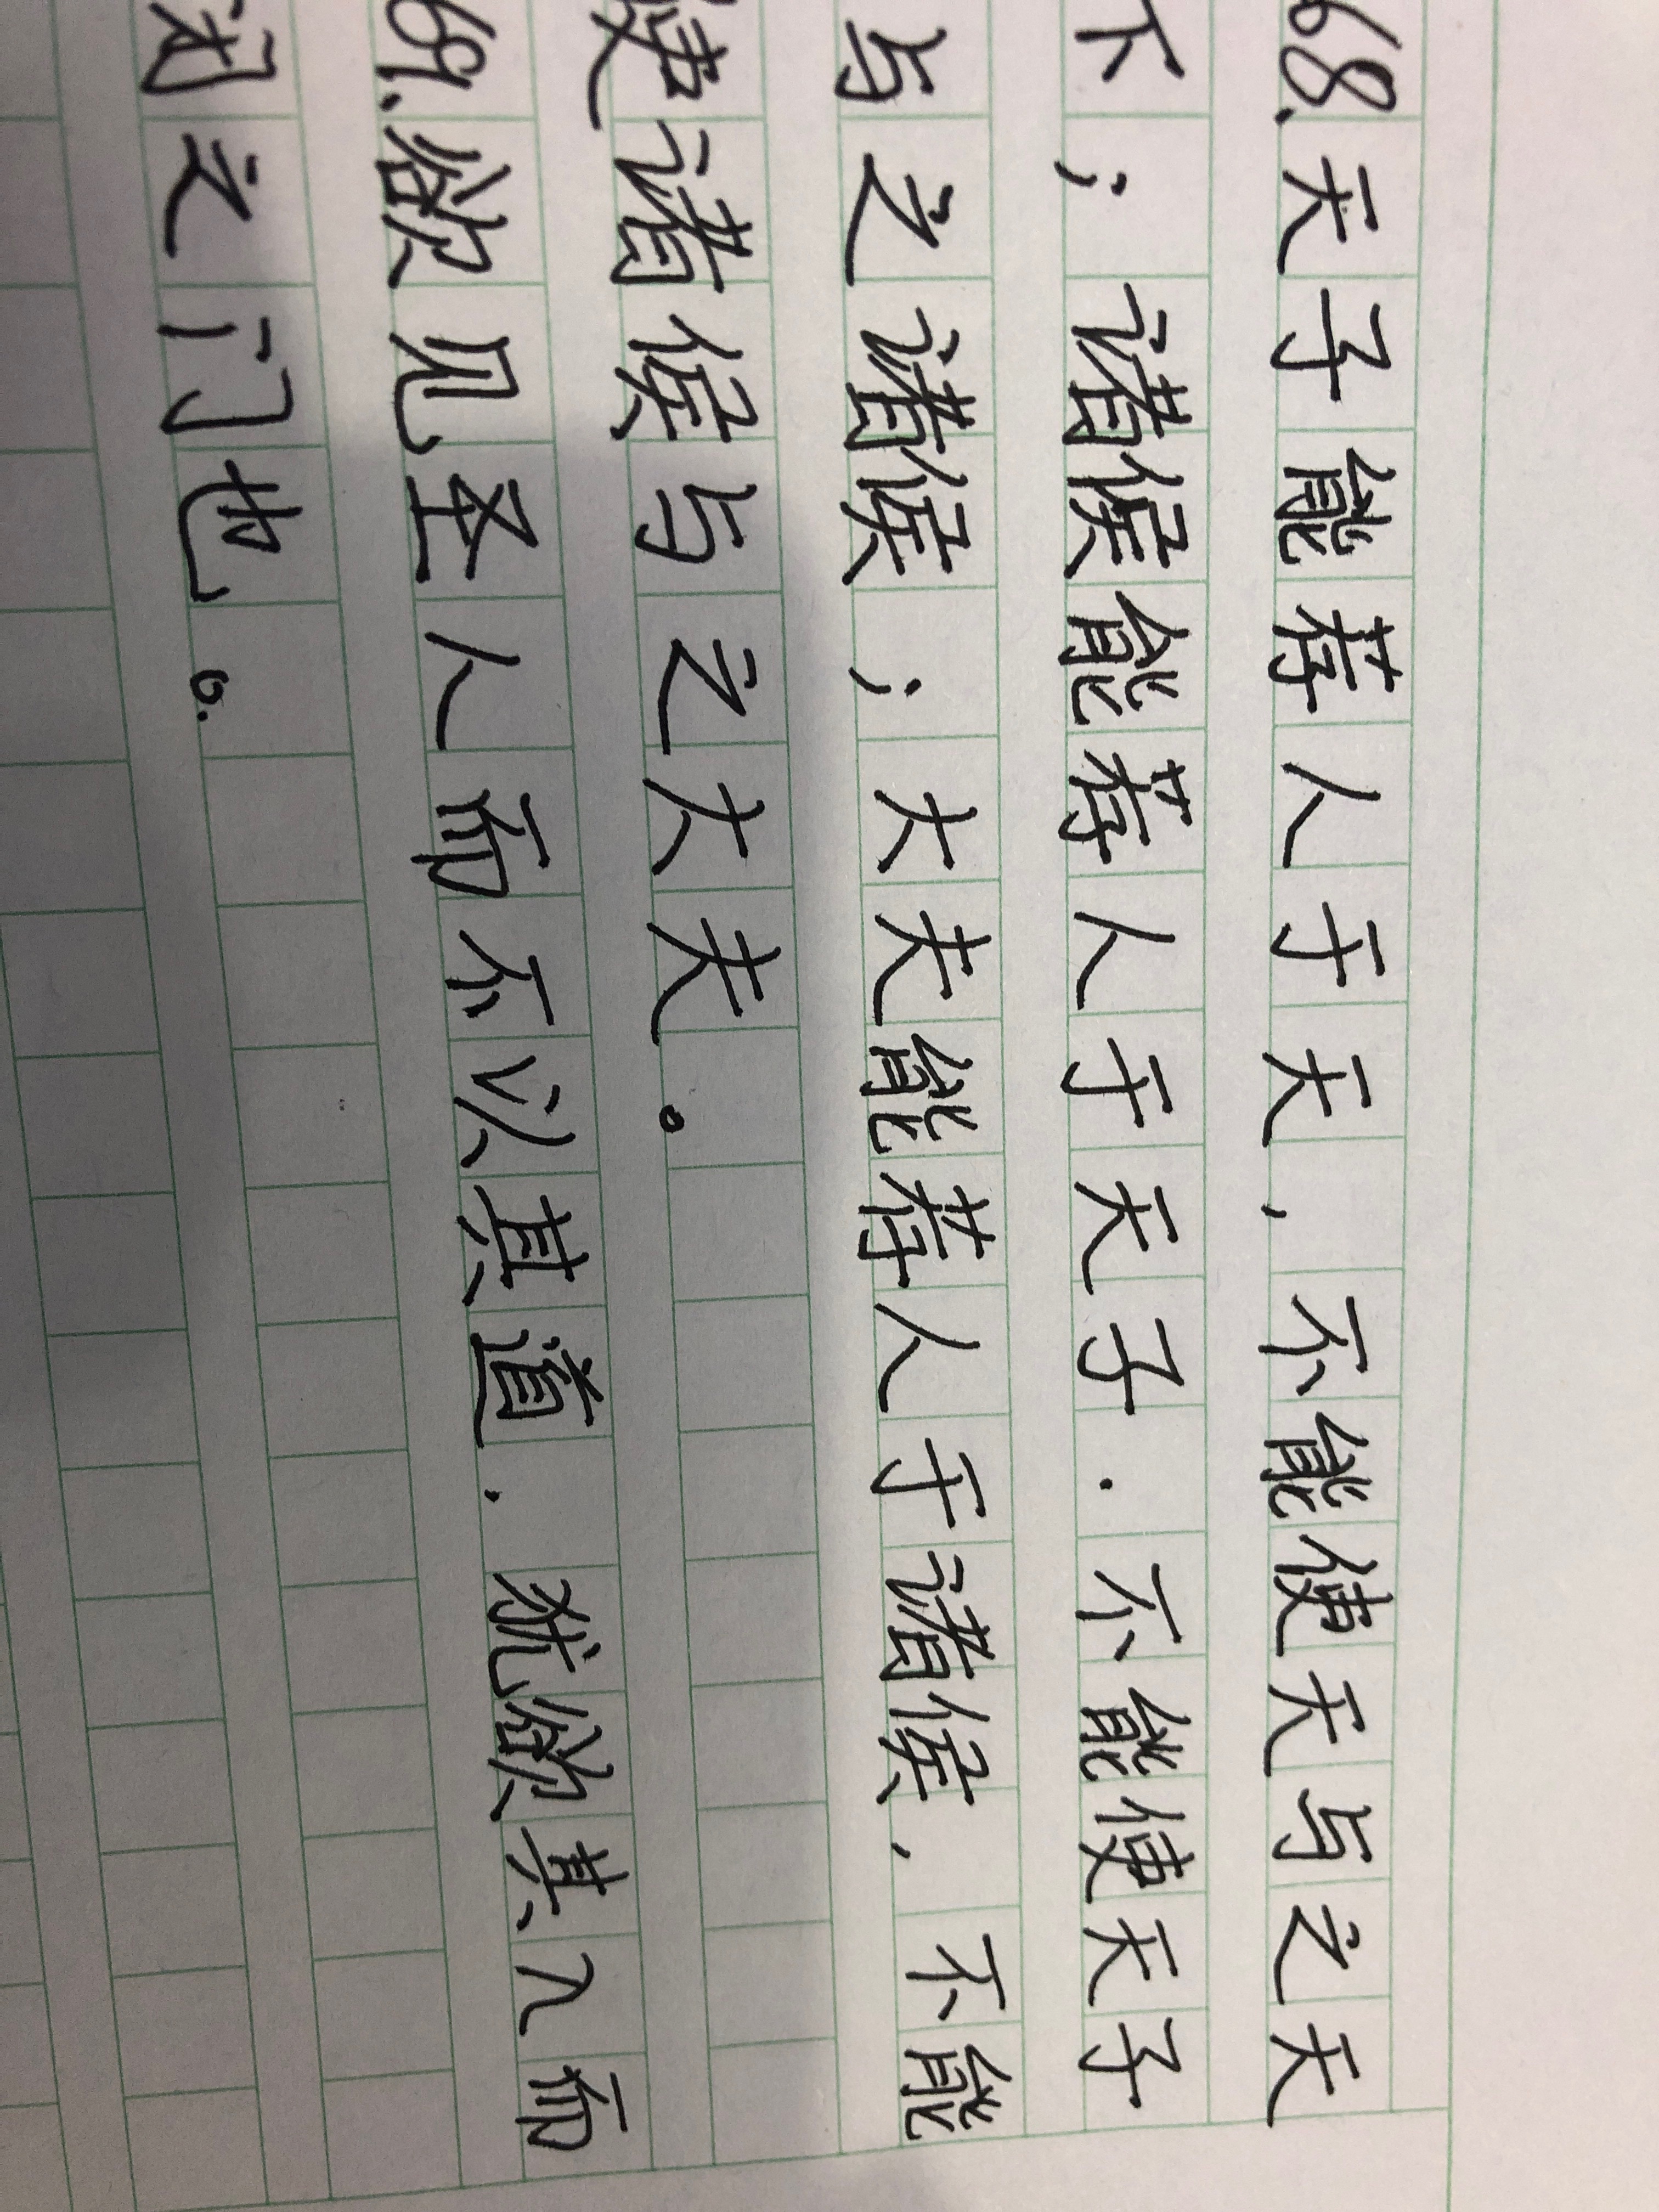 68.天子能荐人于天,不能使天与之天
下;诸侯能荐人于天子.不能使天子
与之诸侯;大夫能荐人于诸侯,不能
使诸侯与之大夫。
69.欲见圣人而不以其道.犹欲其入而
闭之门也。